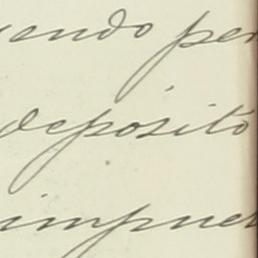 endo per
depósito
impues